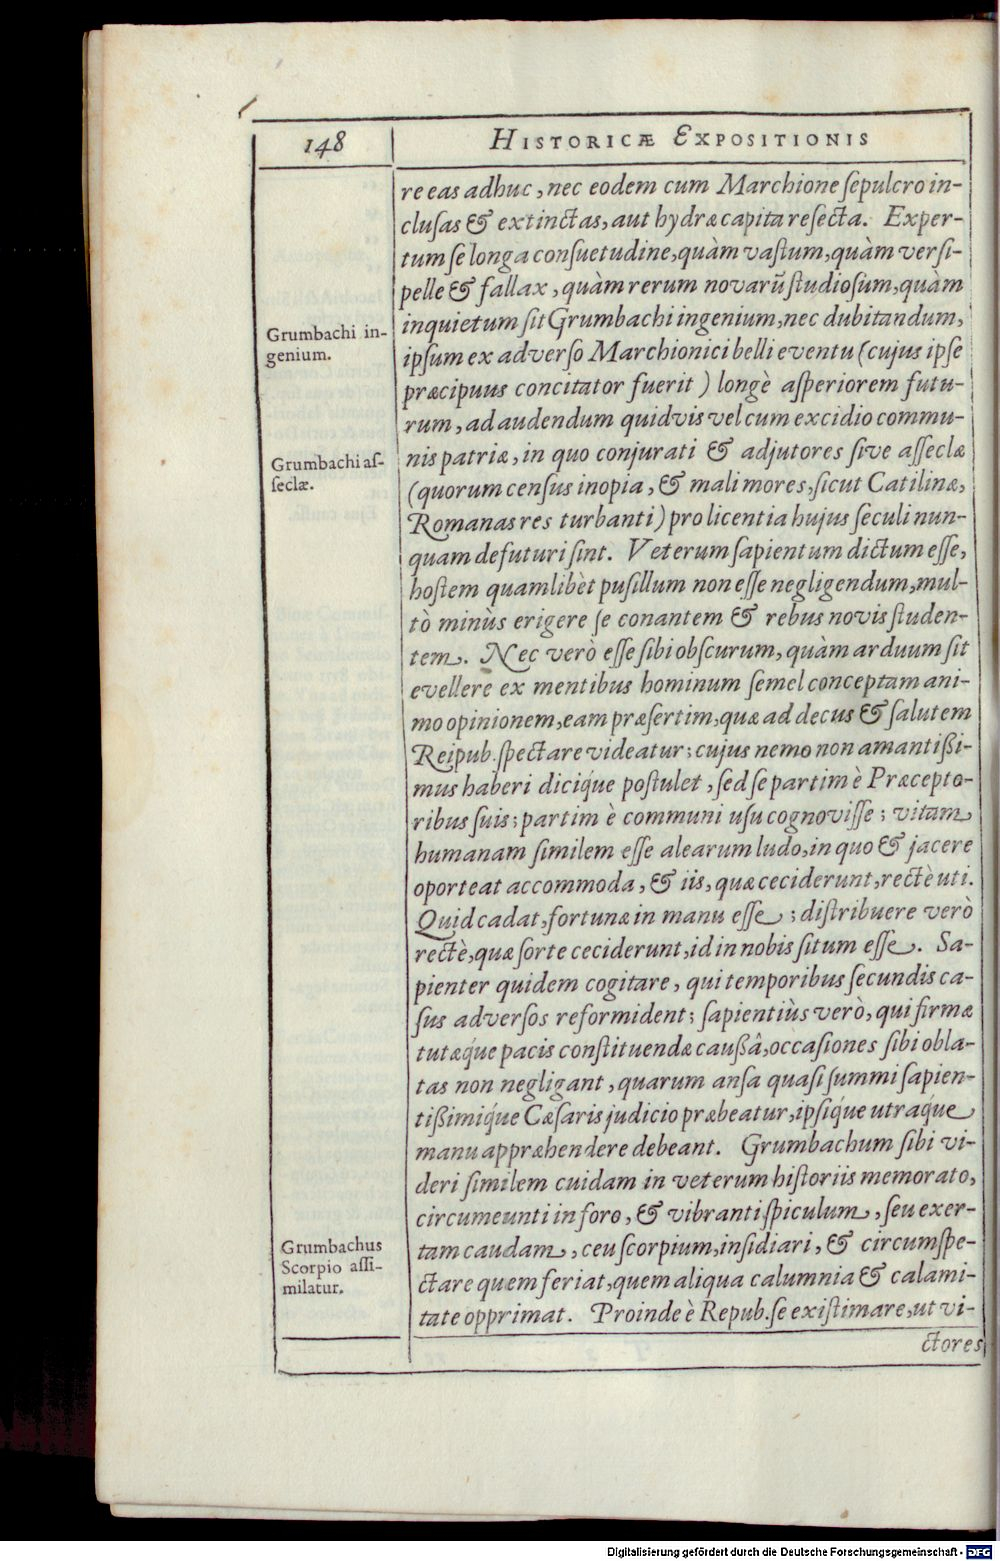 148
HISTORICÆ EXPOSITIONIS
re eas adhuc, nec eodem cum Marchione ſepulcro in-
cluſas & extinctas, aut hydræ capita reſecta. Exper-
tum ſe longa conſuetudine, quàm vaſtum, quàm verſi-
pelle & fallax, quàm rerum novarũ ſtudioſum, quàm
Grumbachi in-
genium.
inquietum ſit Grumbachi ingenium, nec dubitandum,
ipſum ex adverſo Marchionici belli eventu (cujus ipſe
præcipuus concitator fuerit) longè aſperiorem futu-
rum, ad audendum quidvis vel cum excidio commu-
Grumbachi aſ-
ſeclæ.
nis patriæ, in quo conjurati & adjutores ſive aſſeclæ
(quorum cenſus inopia, & mali mores, ſicut Catilinæ,
Romanas res turbanti) pro licentia hujus ſeculi nun-
quam defuturi ſint. Veterum ſapientum dictum eſſe,
hoſtem quamlibèt puſillum non eſſe negligendum, mul-
tò minùs erigere ſe conantem & rebus novis ſtuden-
tem. Nec verò eſſe ſibi obſcurum, quàm arduum ſit
evellere ex mentibus hominum ſemel conceptam ani-
mo opinionem, eam præſertim, quæ ad decus & ſalutem
Reipub. ſpectare videatur; cujus nemo non amantißi-
mus haberi dicíque poſtulet, ſed ſe partim è Præcepto-
ribus ſuis; partim è communi uſu cognoviſſe; vitam
humanam ſimilem eſſe alearum ludo, in quo & jacere
oporteat accommoda, & iis, quæ ceciderunt, rectè uti.
Quid cadat, fortunæ in manu eſſe; diſtribuere verò
rectè, quæ ſorte ceciderunt, id in nobis ſitum eſſe. Sa-
pienter quidem cogitare, qui temporibus ſecundis ca-
ſus adverſos reformident; ſapientiùs verò, qui firmæ
tutæq́ue pacis conſtituendæ caußâ, occaſiones ſibi obla-
tas non negligant, quarum anſa quaſi ſummi ſapien-
tißimiq́ue Cæſaris judicio præbeatur, ipſiq́ue utraq́ue
manu appræhendere debeant. Grumbachum ſibi vi-
deri ſimilem cuidam in veterum hiſtoriis memorato,
circumeunti in foro, & vibranti ſpiculum, ſeu exer-
Grumbachus
Scorpio aſſi-
milatur.
tam caudam, ceu ſcorpium, inſidiari, & circumſpe-
ctare quem feriat, quem aliqua calumnia & calami-
tate opprimat. Proinde è Repub. ſe exiſtimare, ut vi-
ctores
Digitalisierung gefördert durch die Deutsche Forschungsgemeinschaft - DFG